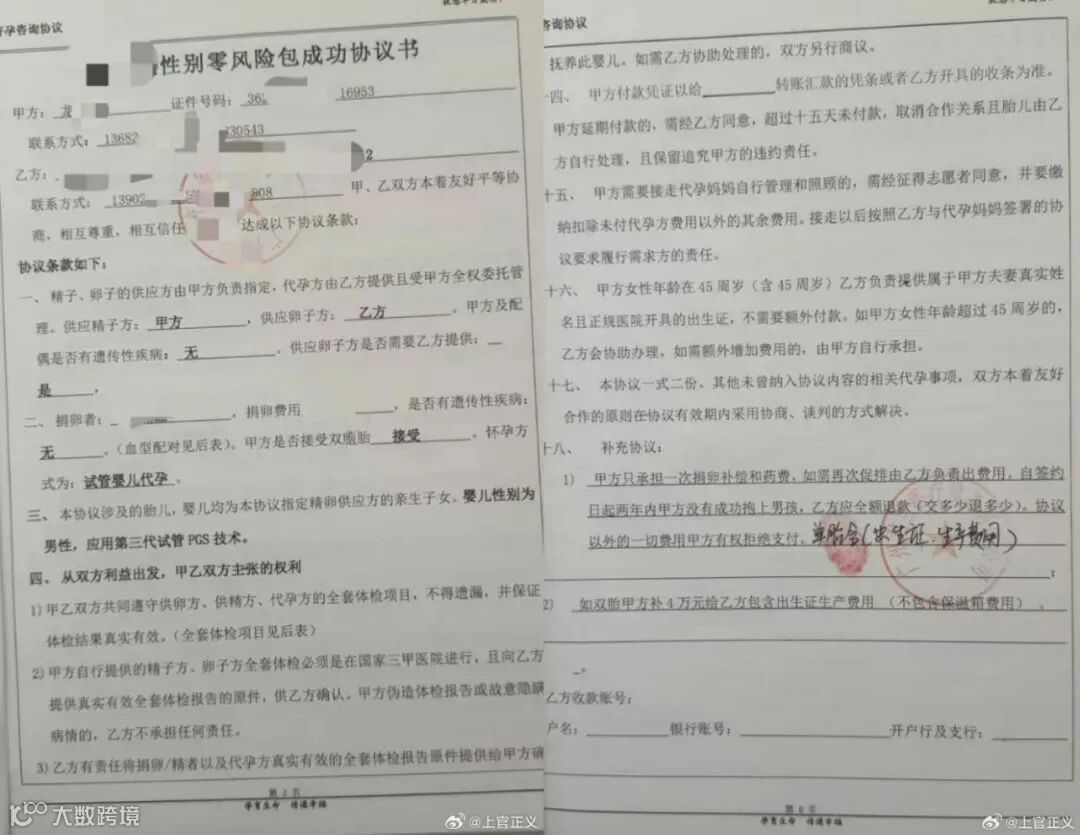 孕咨询协议
性别零风险包成功协议书
甲方:
证件号码: 362 16953
联系方式: 13682 130543
乙方: 2
联系方式: 13902 808 甲、乙双方本着友好平等协
商，相互尊重，相互信任 达成以下协议条款:
协议条款如下:
一、 精子、卵子的供应方由甲方负责指定，代孕方由乙方提供且受甲方全权委托管
理。供应精子方: 甲方 ，供应卵子方: 乙方 。甲方及配
偶是否有遗传性疾病: 无 。供应卵子方是否需要乙方提供:
是 ，
二、 捐卵者: ，捐卵费用 ，是否有遗传性疾病:
无 。（血型配对见后表）。甲方是否接受双胞胎 接受 。怀孕方
式为: 试管婴儿代孕 。
三、 本协议涉及的胎儿，婴儿均为本协议指定精卵供应方的亲生子女。婴儿性别为
男性，应用第三代试管 PGS 技术。
四、 从双方利益出发，甲乙双方主张的权利
1) 甲乙双方共同遵守供卵方、供精方、代孕方的全套体检项目，不得遗漏，并保证
体检结果真实有效。（全套体检项目见后表）
2) 甲方自行提供的精子方、卵子方全套体检必须是在国家三甲医院进行，且向乙方
提供真实有效全套体检报告的原件，供乙方确认。甲方伪造体检报告或故意隐瞒
病情的，乙方不承担任何责任。
3) 乙方有责任将捐卵/精者以及代孕方真实有效的全套体检报告原件提供给甲方确
第 2 页
孕育生命 传递幸福
大数跨境
@上官正义
咨询协议
抚养此婴儿。如需乙方协助处理的，双方另行商议。
十四、 甲方付款凭证以给 转账汇款的凭条或者乙方开具的收条为准。
甲方延期付款的，需经乙方同意，超过十五天未付款，取消合作关系且胎儿由乙
方自行处理，且保留追究甲方的违约责任。
十五、 甲方需要接走代孕妈妈自行管理和照顾的，需经征得志愿者同意，并要缴
纳扣除未付代孕方费用以外的其余费用。接走以后按照乙方与代孕妈妈签署的协
议要求履行需求方的责任。
十六、 甲方女性年龄在 45 周岁（含 45 周岁）乙方负责提供属于甲方夫妻真实姓
名且正规医院开具的出生证，不需要额外付款。如甲方女性年龄超过 45 周岁的，
乙方会协助办理，如需额外增加费用的，由甲方自行承担。
十七、 本协议一式二份。其他未曾纳入协议内容的相关代孕事项，双方本着友好
合作的原则在协议有效期内采用协商、谈判的方式解决。
十八、 补充协议:
1) 甲方只承担一次捐卵补偿和药费，如需再次促排由乙方负责出费用。自签约
日起两年内甲方没有成功抱上男孩，乙方应全额退款（交多少退多少）。协议
以外的一切费用甲方有权拒绝支付。单胎含（出生证、生产费用）
;
2) 如双胎甲方补 4 万元给乙方包含出生证生产费用 （不包含保温箱费用） 。
。
乙方收款账号:
户名: 银行账号: 开户行及支行:
第 6 页
孕育生命 传递幸福
@上官正义